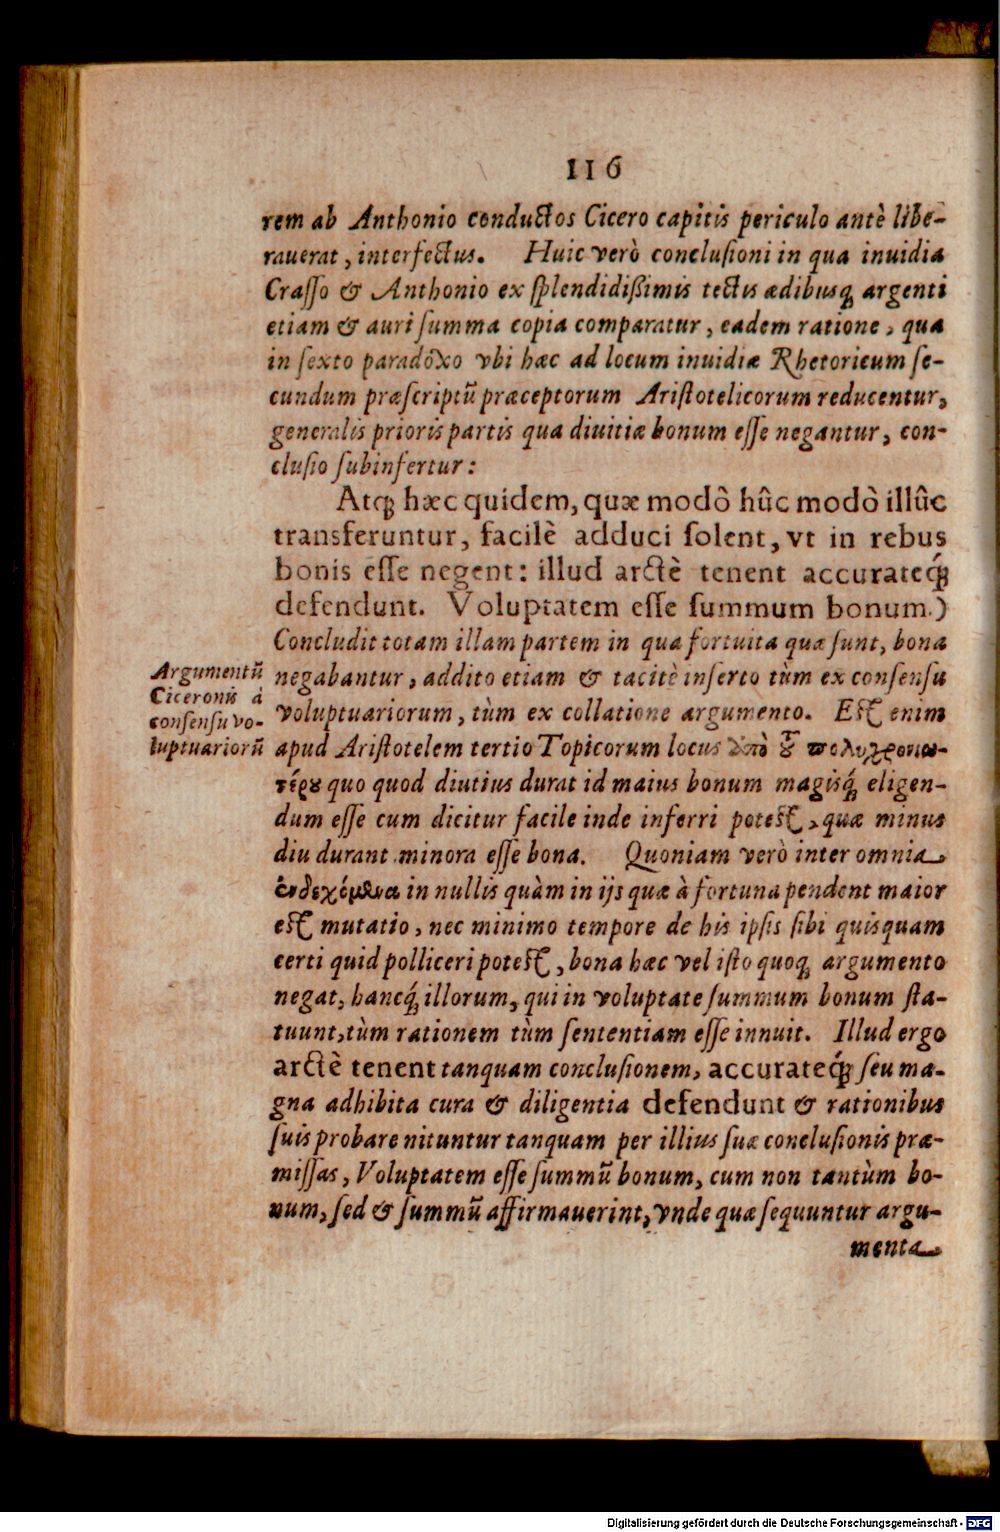 116
rem ab Anthonio conductos Cicero capitis periculo antè libe-
rauerat, interfectus. Huic verò conclusioni in qua inuidia
Crasso & Anthonio ex splendidißimis tectis ædibusq; argenti
etiam & auri summa copia comparatur, eadem ratione, qua
in sexto paradóxo vbi hæc ad locum inuidiæ Rhetoricum se-
cundum præscriptũ præceptorum Aristotelicorum reducentur,
generalis prioris partis qua diuitiæ bonum esse negantur, con-
clusio subinfertur:
Atq; hæc quidem, quæ modò hûc modò illûc
transferuntur, facilè adduci solent, vt in rebus
bonis esse negent: illud arctè tenent accurateq́;
defendunt. Voluptatem esse summum bonum.)
Concludit totam illam partem in qua fortuita quæ sunt, bona
Argumentũ
Ciceronis á
consensu vo-
luptuariorũ
negabantur, addito etiam & tacitè inserto tùm ex consensu
voluptuariorum, tùm ex collatione argumento. Est enim
apud Aristotelem tertio Topicorum locus ὑπὸ τοῦ πολυχρονιω-
τέρου quo quod diutius durat id maius bonum magisq́; eligen-
dum esse cum dicitur facile inde inferri potest, quæ minus
diu durant minora esse bona. Quoniam verò inter omnia
ἐνδεχόμενα in nullis quàm in ijs quæ à fortuna pendent maior
est mutatio, nec minimo tempore de his ipsis sibi quisquam
certi quid polliceri potest, bona hæc vel isto quoq; argumento
negat, hancq́; illorum, qui in voluptate summum bonum sta-
tuunt, tùm rationem tùm sententiam esse innuit. Illud ergo
arctè tenent tanquam conclusionem, accurateq́; seu ma-
gna adhibita cura & diligentia defendunt & rationibus
suis probare nituntur tanquam per illius suæ conclusionis præ-
missas, Voluptatem esse summũ bonum, cum non tantùm bo-
num, sed & summũ affirmauerint, vnde quæ sequuntur argu-
menta
Digitalisierung gefördert durch die Deutsche Forschungsgemeinschaft - DFG